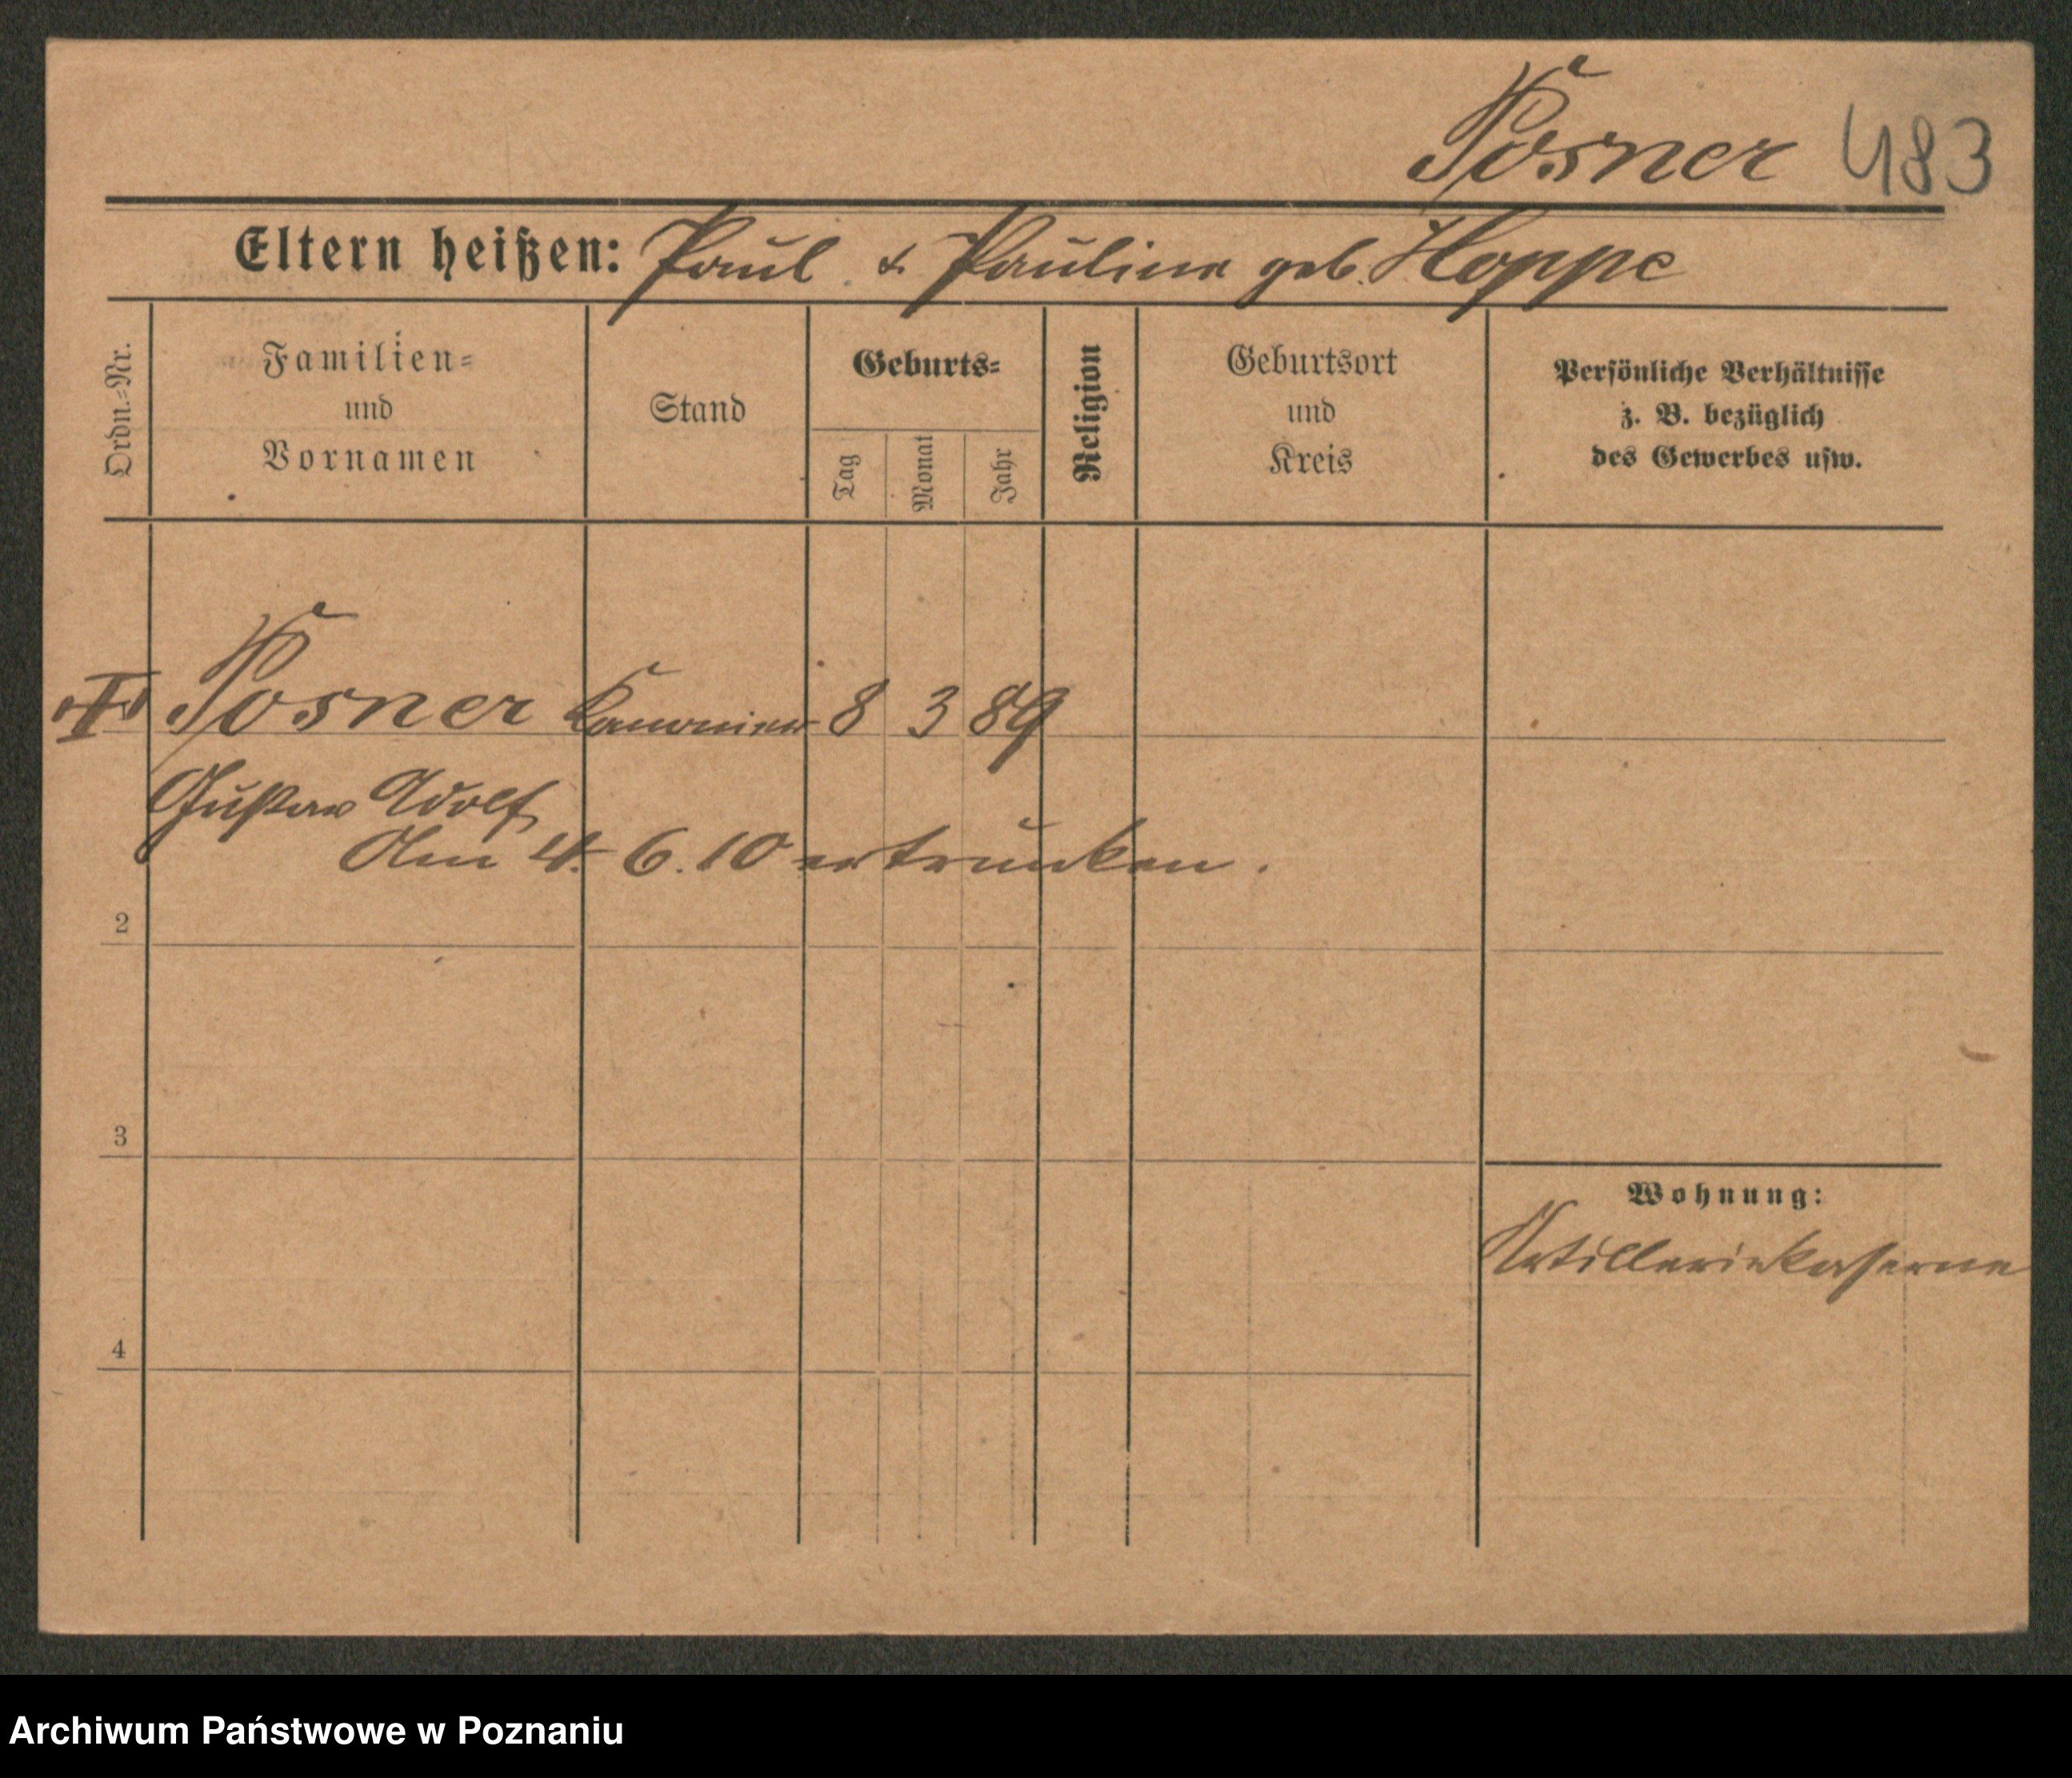 Posner 483
Eltern heißen: Paul & Pauline geb. Hoppe
Ordn.-Nr.
Familien-
und
Vornamen
Stand
Geburts-
Tag
Monat
Jahr
Religion
Geburtsort
und
Kreis
Persönliche Verhältnisse
z. B. bezüglich
des Gewerbes usw.
Posner Kanonier 8 3 89
Gustav Adolf
Am 4. 6. 10 ertrunken.
2
3
Wohnung:
Artilleriekaserne
4
Archiwum Państwowe w Poznaniu